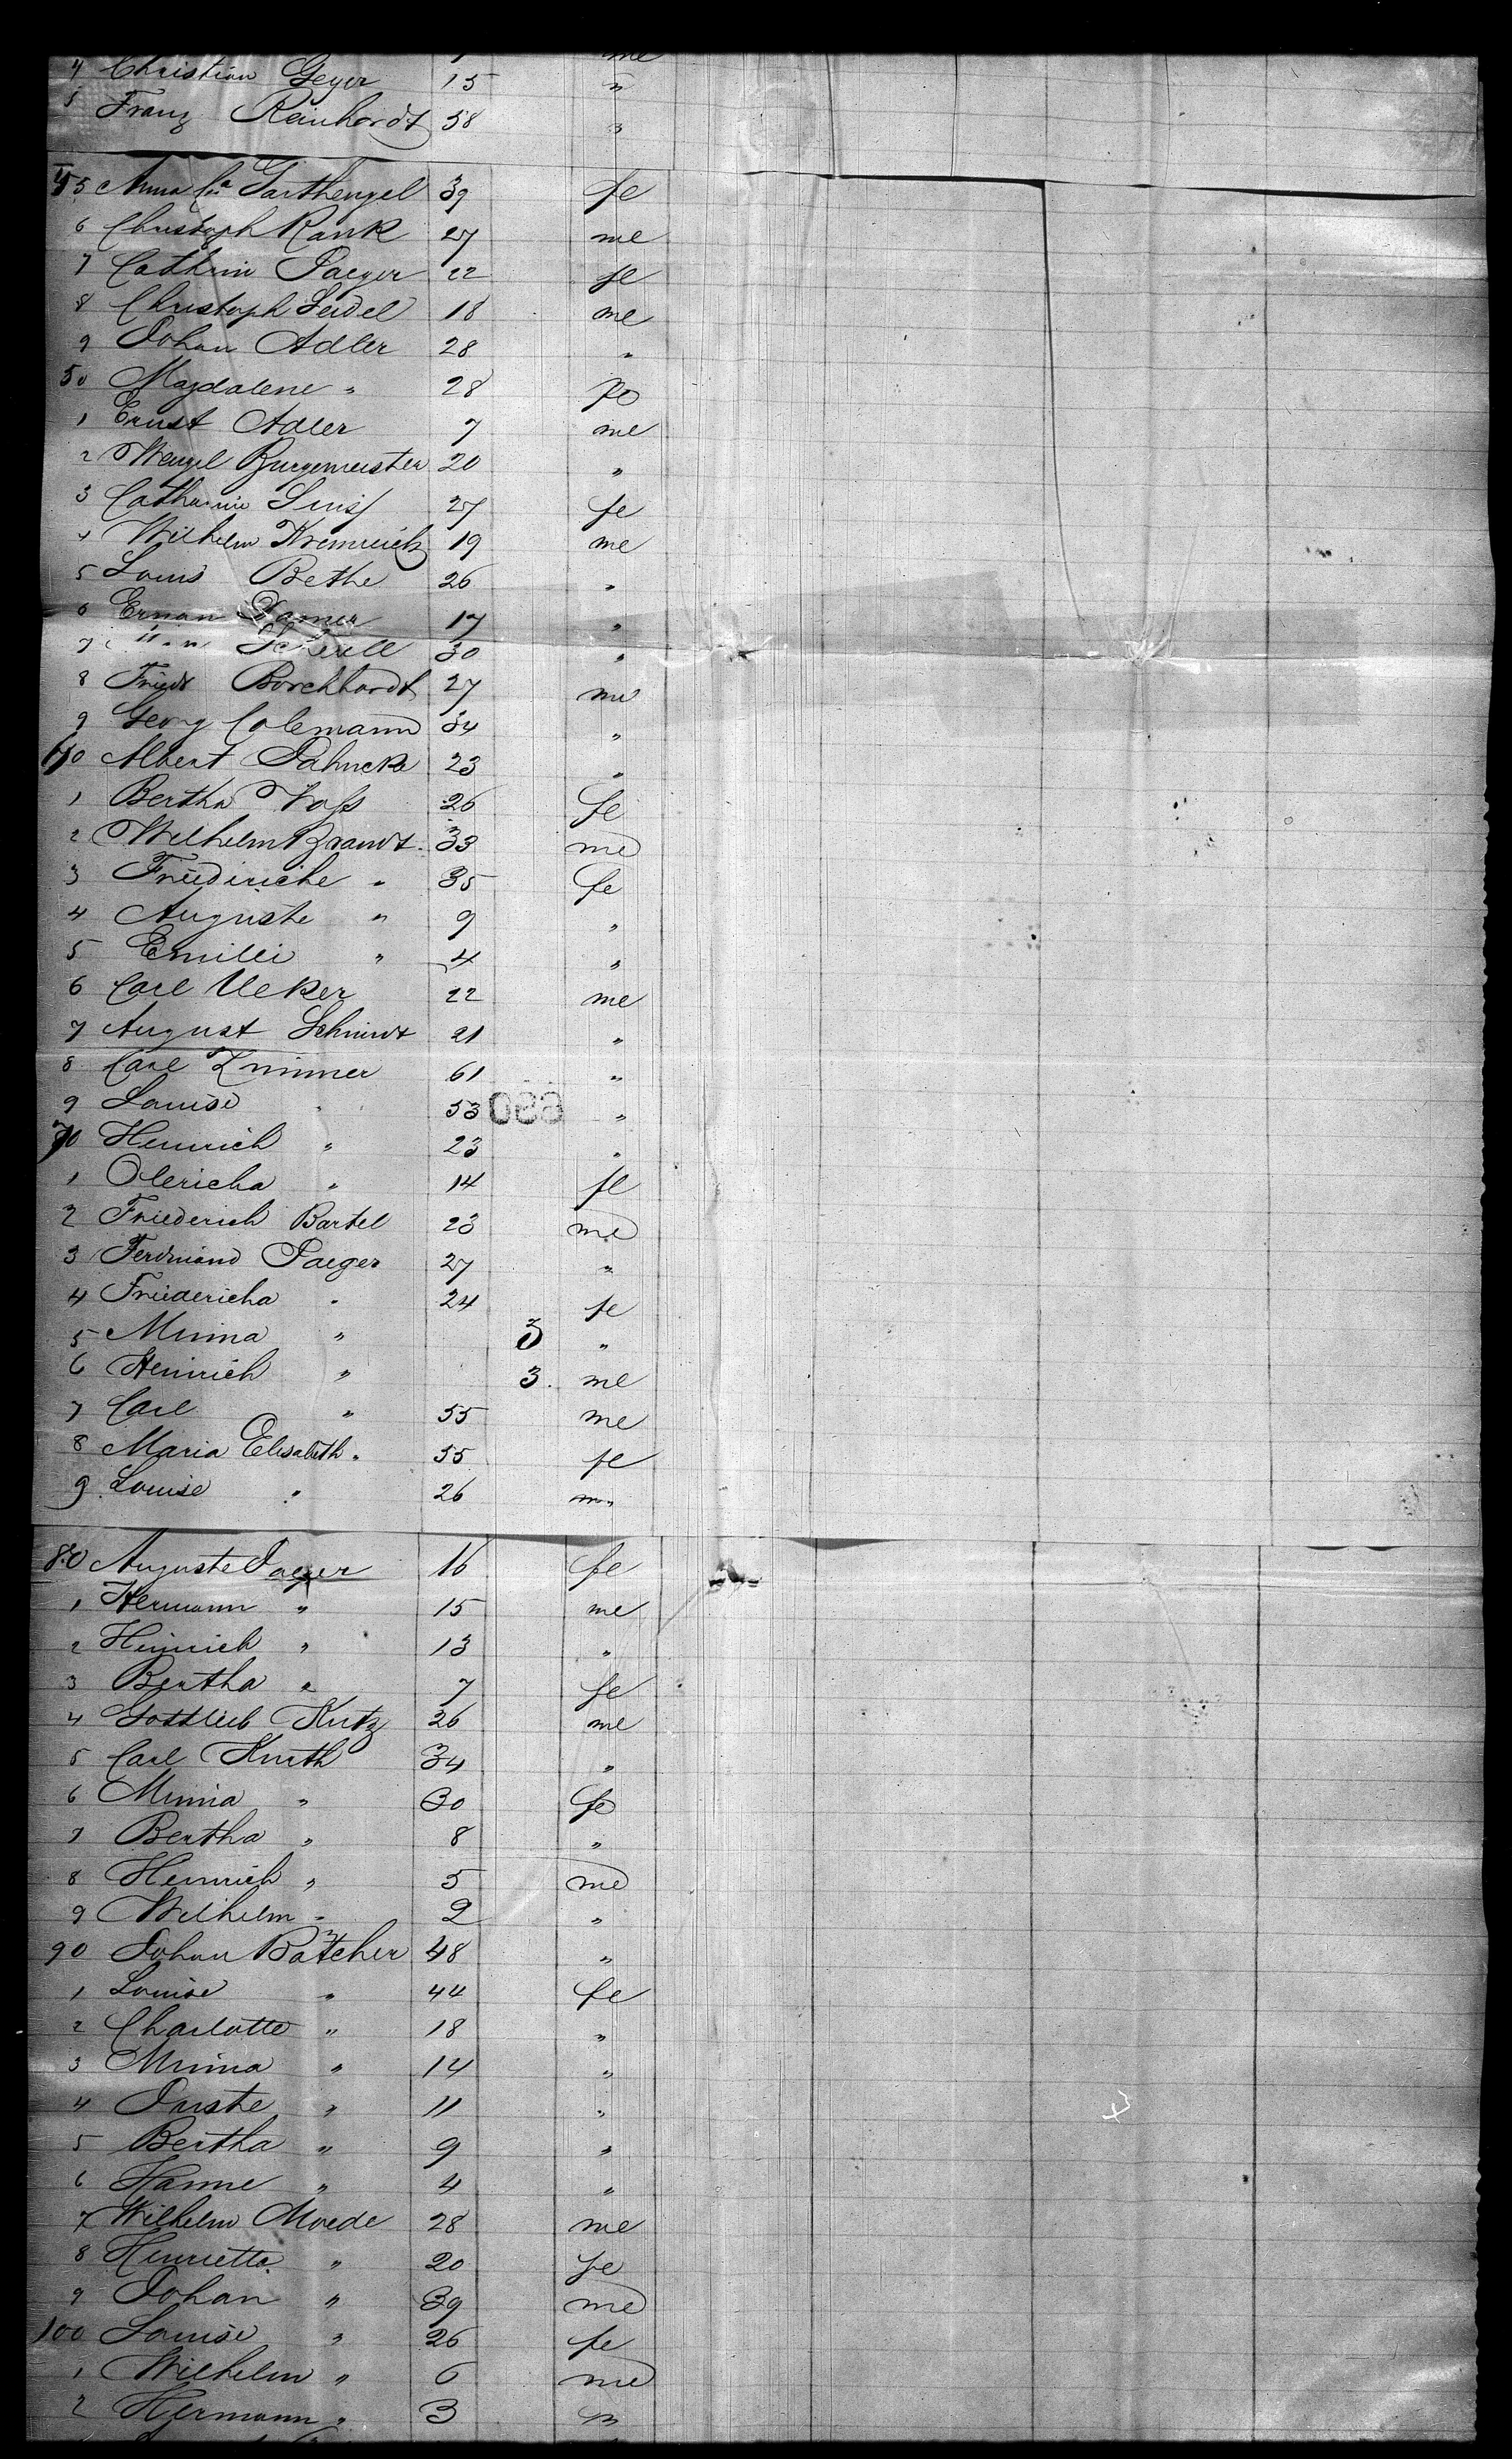 4 Christian Geyer 15 "
5 Franz Reinhardt 58 "
45 Anna 39 fe
6 Christoph Rank 27 me
7 Cathrin Jaeger 22 fe
8 Christoph Seidel 18 me
9 Johan Adler 28 "
50 Magdalene " 28 fe
1 Ernst Adler 7 me
2 Wenzel Burgemeister 20 "
3 27 fe
4 Wilhelm 19 me
5 Louis Bethe 26 "
6 17 "
7 30 "
8 Friedr Borchhardt 27 me
9 Georg Colemann 34 "
60 Albert 23 "
1 Bertha Voss 26 fe
2 Wilhelm Brandt 33 me
3 Friediriche " 35 fe
4 Auguste " 9 "
5 Emilei " 4 "
6 Carl Ueker 22 me
7 August Schmidt 21 "
8 Carl Zimmer 61 "
9 Louise " 53 "
70 Heinrich " 23 "
1 Olericha " 14 fe
2 Friederich Bartel 23 me
3 Ferdinand Jaeger 27 "
4 Friedericha " 24 fe
5 Minna " 3 "
6 Heinrich " 3 me
7 Carl " 55 me
8 Maria Elisabeth " 55 fe
9 Louise " 26
80 Auguste Jaeger 16 fe
1 Hermann " 15 me
2 Heinrich " 13 "
3 Bertha " 7 fe
4 Gottlieb Kutz 26 me
5 Carl Kurth 34 "
6 Minna " 30 fe
7 Bertha " 8 "
8 Heinrich " 5 me
9 Wilhelm " 2 "
90 Johan Bätcher 48 "
1 Louise " 44 fe
2 Charlotte " 18 "
3 Minna " 14 "
4 " 11 "
5 Bertha " 9 "
6 Hanne " 4 "
7 Wilhelm Moede 28 me
8 Henrietta " 20 fe
9 Johan " 39 me
100 Louise " 26 fe
1 Wilhelm " 6 me
2 Hermann " 3 "